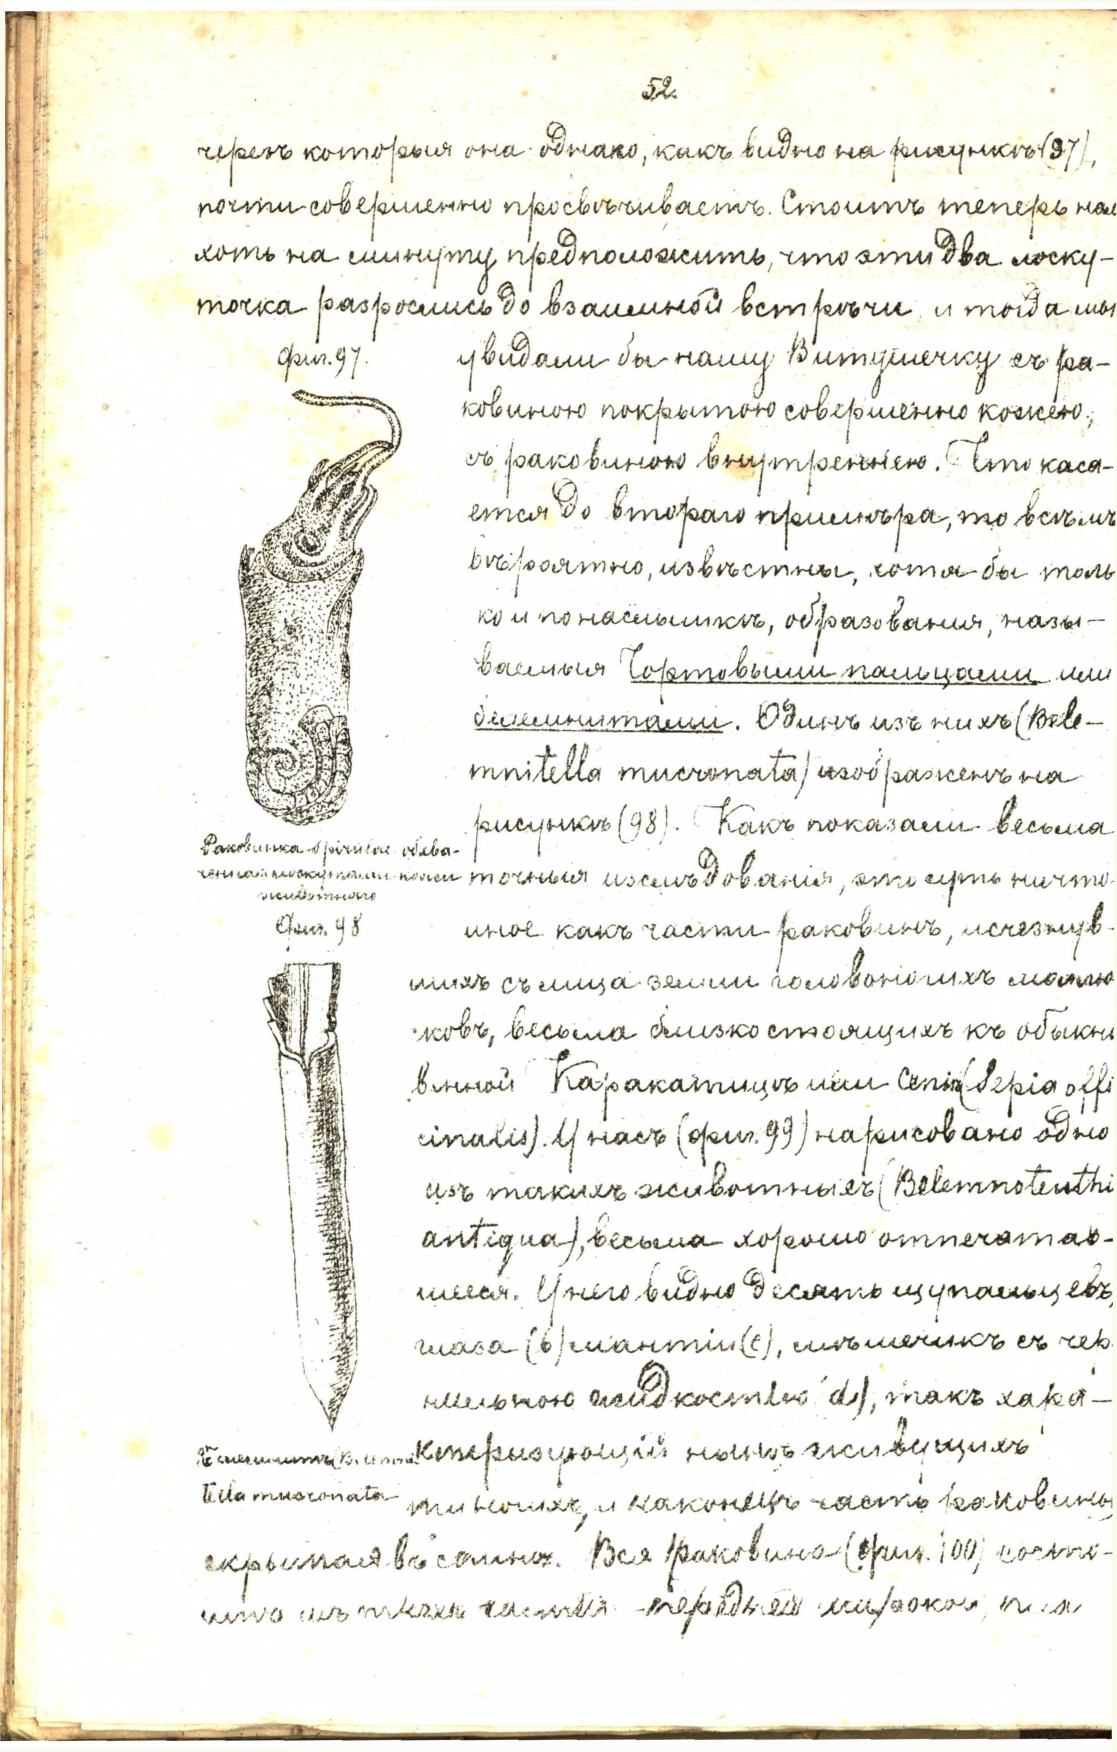 52.
черезъ которыя она однако, какъ видно на рисункѣ (97),
почти совершенно просвѣчиваетъ. Стоитъ теперь нам
хоть на минуту предположить, что эти два лоску-
точка разрослись до взаимной встрѣчи и тогда мы
Фиг. 97.
увидали бы нашу Витушечку съ ра-
ковиною покрытою совершенно кожею,
съ раковиною внутреннею. Что каса-
ется до втораго примѣра, то всѣмъ
вѣроятно, извѣстны, хотя бы толь
ко и по наслышкѣ, образованія, назы-
ваемыя Чортовыми пальцами или
белемнитами. Одинъ изъ нихъ (Bele-
mnitella mucronata) изображенъ на
рисункѣ (98). Какъ показали весьма
Раковинка Spirulae обхва-
ченная лоскутами кожи
животнаго
точныя изслѣдованія, это суть ничто
Фиг. 98
иное какъ части раковинъ, исчезнув-
шихъ съ лица земли головоногихъ моллю
сковъ, весьма близко стоящихъ къ обыкн
венной Каракатицѣ или Сепіи (Sepia offi
cinalis). У насъ (фиг. 99) нарисовано одно
изъ такихъ животныхъ (Belemnoteuthi
antiqua), весьма хорошо отпечатав-
шееся. У него видно десять щупальцевъ,
глаза (b) мантіи (c), мѣшечикъ съ чер
нильною жидкостью d), такъ хара-
ктеризующій нынѣ живущихъ
Белемнитъ
tella mucronata
и наконецъ часть раковины
скрытая въ спинѣ. Вся раковина (фиг. 100) состо-
итъ изъ трехъ частей передней широкой